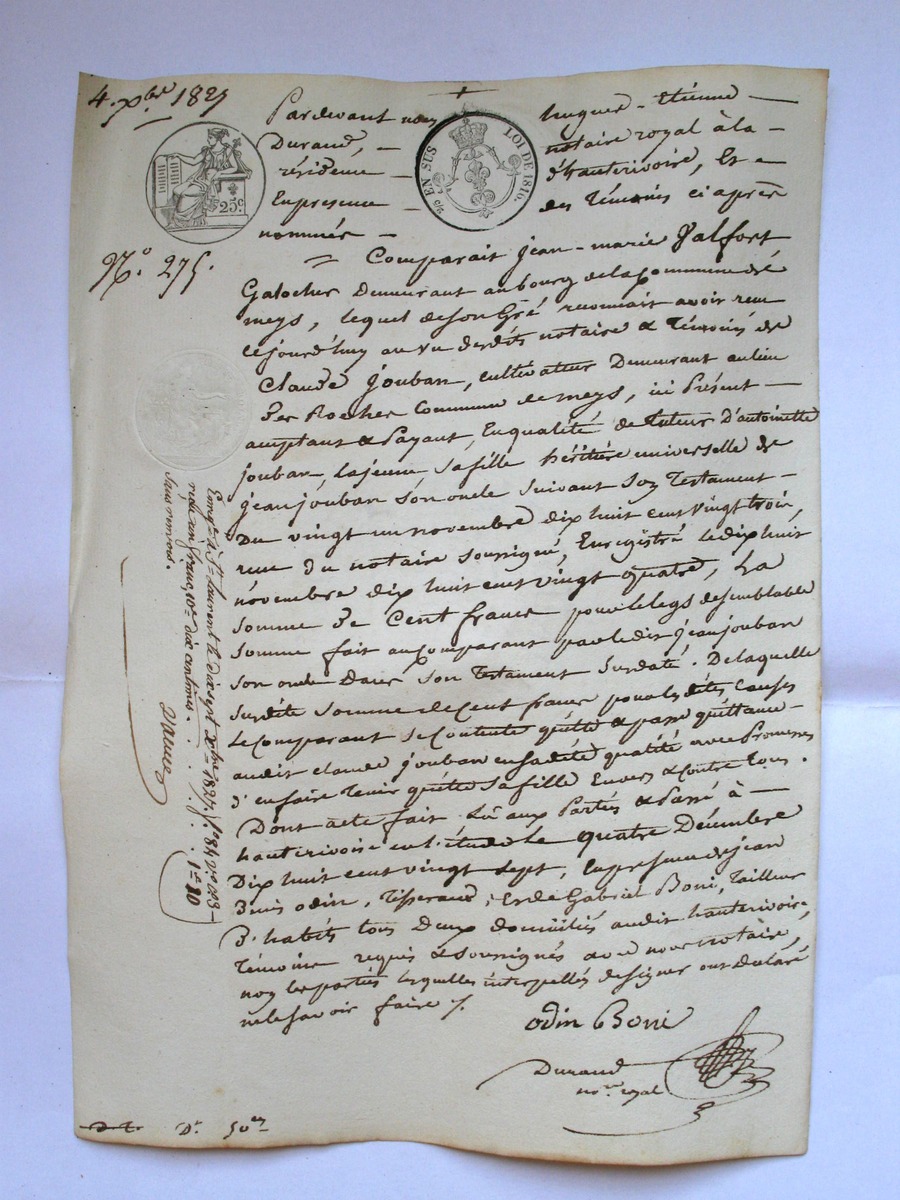 4 xbre 1827
Pardevant nous hugues-étienne
Durand, notaire royal à la
résidence d'hauterivoire, Et
En presence des témoins ci après
nommés
25c.
EN SUS
LOI DE 1816.
N.o 275.
Comparait jean-marie Valfort
Galocher Demeurant au bourg de la Commune de
meys, lequel de son Gré reconnait avoir reçu
cejourd'huy au vu desdits notaire & témoins de
Claude jouban, cultivateur Demeurant au lieu
Des Rocher Commune de meys, ici Présent
acceptant & Payant, En qualité de tuteur D'antoinette
jouban, la jeune, sa fille héritière universelle de
jean jouban son oncle suivant son Testament
Du vingt un novembre dix huit cent vingt trois,
reçu du notaire soussigné, Enregistré le dix huit
novembre dix huit cent vingt quatre, La
somme De Cent francs pour le legs de semblable
somme fait au comparant par ledit jean jouban
son oncle dans son Testament susdaté. De laquelle
susdite somme de cent francs pour les dites causes
le comparant se contente quitte & passe quittance
audit claude jouban en sadite qualité avec Promesse
d'en faire tenir quitte sa fille Envers & contre tous.
Dont acte fait Lû aux Parties & Passé à
hauterivoire en l'étude le quatre Décembre
Dix huit cent vingt sept, En presence de jean
Denis odin, Tisserand, et de Gabriel Boni, Tailleur
D'habits tous Deux domiciliés audit hauterivoire,
Témoins requis & soussignés avec nous notaire,
non les parties lesquelles interpellés de signer ont déclaré
ne le savoir faire /.
odin Boni
Durand
no.re royal
Enreg.é à St. Laurent le dix sept xbre 1827. fo 84 Vo C 3
reçu un franc, dixe dix centimes. 1 = 10
sans renvois.
Dt. 50